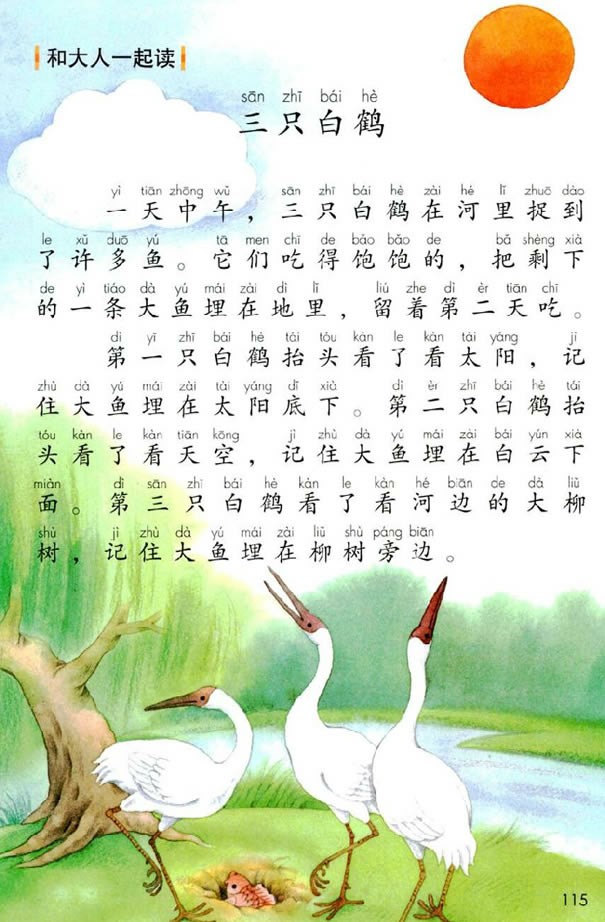 和大人一起读
sān zhī bái hè
三只白鹤
yì tiān zhōng wǔ sān zhī bái hè zài hé lǐ zhuō dào
一天中午，三只白鹤在河里捉到
le xǔ duō yú tā men chī de bǎo bǎo de bǎ shèng xià
了许多鱼。它们吃得饱饱的，把剩下
de yì tiáo dà yú mái zài dì lǐ liú zhe dì èr tiān chī
的一条大鱼埋在地里，留着第二天吃。
dì yī zhī bái hè tái tóu kàn le kàn tài yáng jì
第一只白鹤抬头看了看太阳，记
zhù dà yú mái zài tài yáng dǐ xià dì èr zhī bái hè tái
住大鱼埋在太阳底下。第二只白鹤抬
tóu kàn le kàn tiān kōng jì zhù dà yú mái zài bái yún xià
头看了看天空，记住大鱼埋在白云下
miàn dì sān zhī bái hè kàn le kàn hé biān de dà liǔ
面。第三只白鹤看了看河边的大柳
shù jì zhù dà yú mái zài liǔ shù páng biān
树，记住大鱼埋在柳树旁边。
115